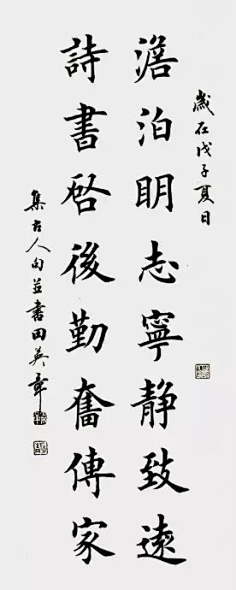 歲在戊子夏日
澹泊明志寧静致遠
詩書啓後勤奮傳家
集古人句並書田英章